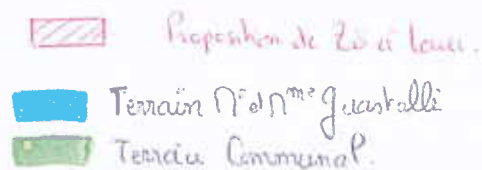 Proposition de Zô à louer.
Terrain Mr et Mme Guastalli
Terrain Communal.